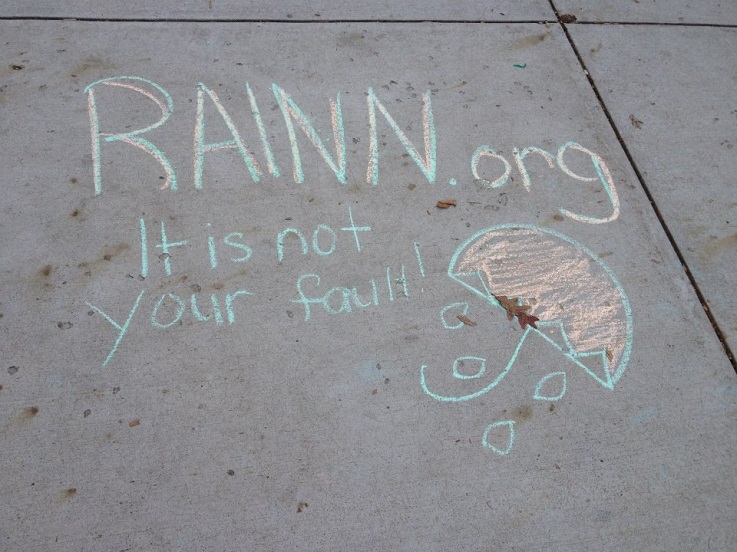 RAINN.org
It is not
your fault!